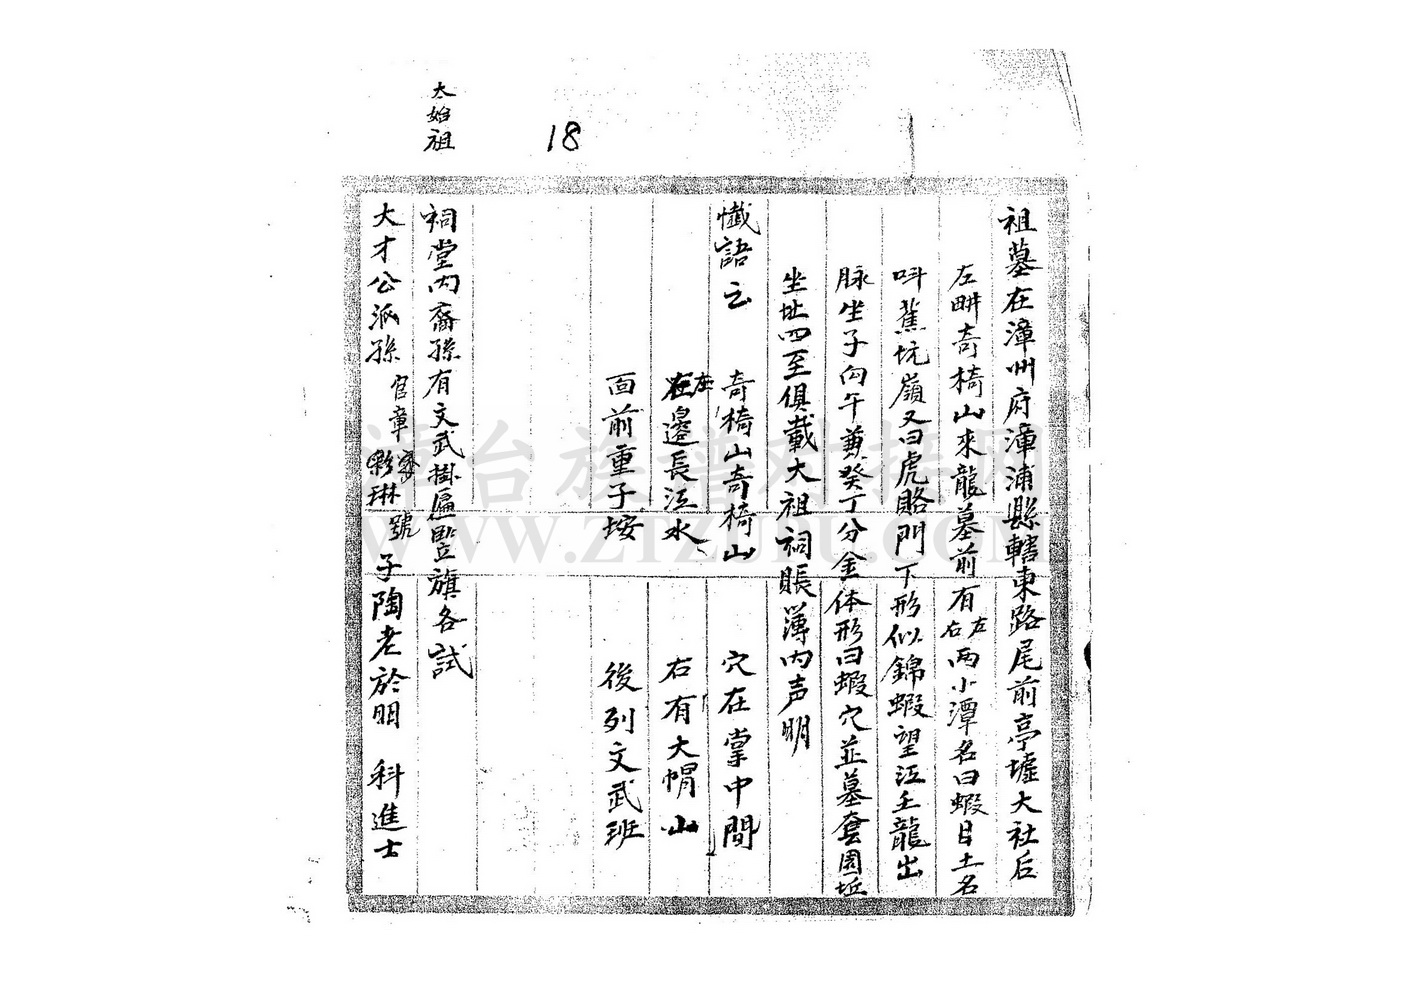 太始祖
18
祖墓在漳州府漳浦縣轄東路尾前亭墟大社后
左畊奇椅山來龍墓前有左右兩小潭名曰蝦目土名
呌蕉坑嶺又曰虎賂門下形似錦蝦望江壬龍出
脉坐子向午兼癸丁分金体形曰蝦穴並墓套園坵
坐址四至俱載大祖祠賬簿内声明
懺語云 奇椅山奇椅山 穴在掌中間
左邊長江水 右有大帽山
面前重子垵 後列文武班
祠堂内裔孫有文武掛匾竪旗各試
大才公派孫 官章 彩琳 號 子陶老於明 科進士
潭台族譜对接网
WWW.ZTZUPU.COM